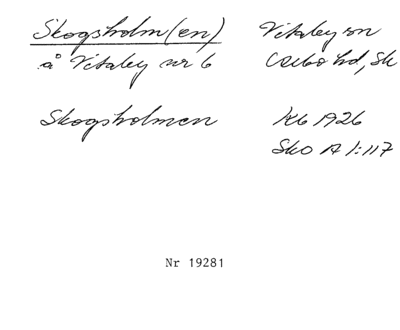 Skogsholm(en)
Vitaby sn
å Vitaby nr 6
Albo hd, Sk
Skogsholmen
Kb 1926
Sko A 1:117
Nr 19281